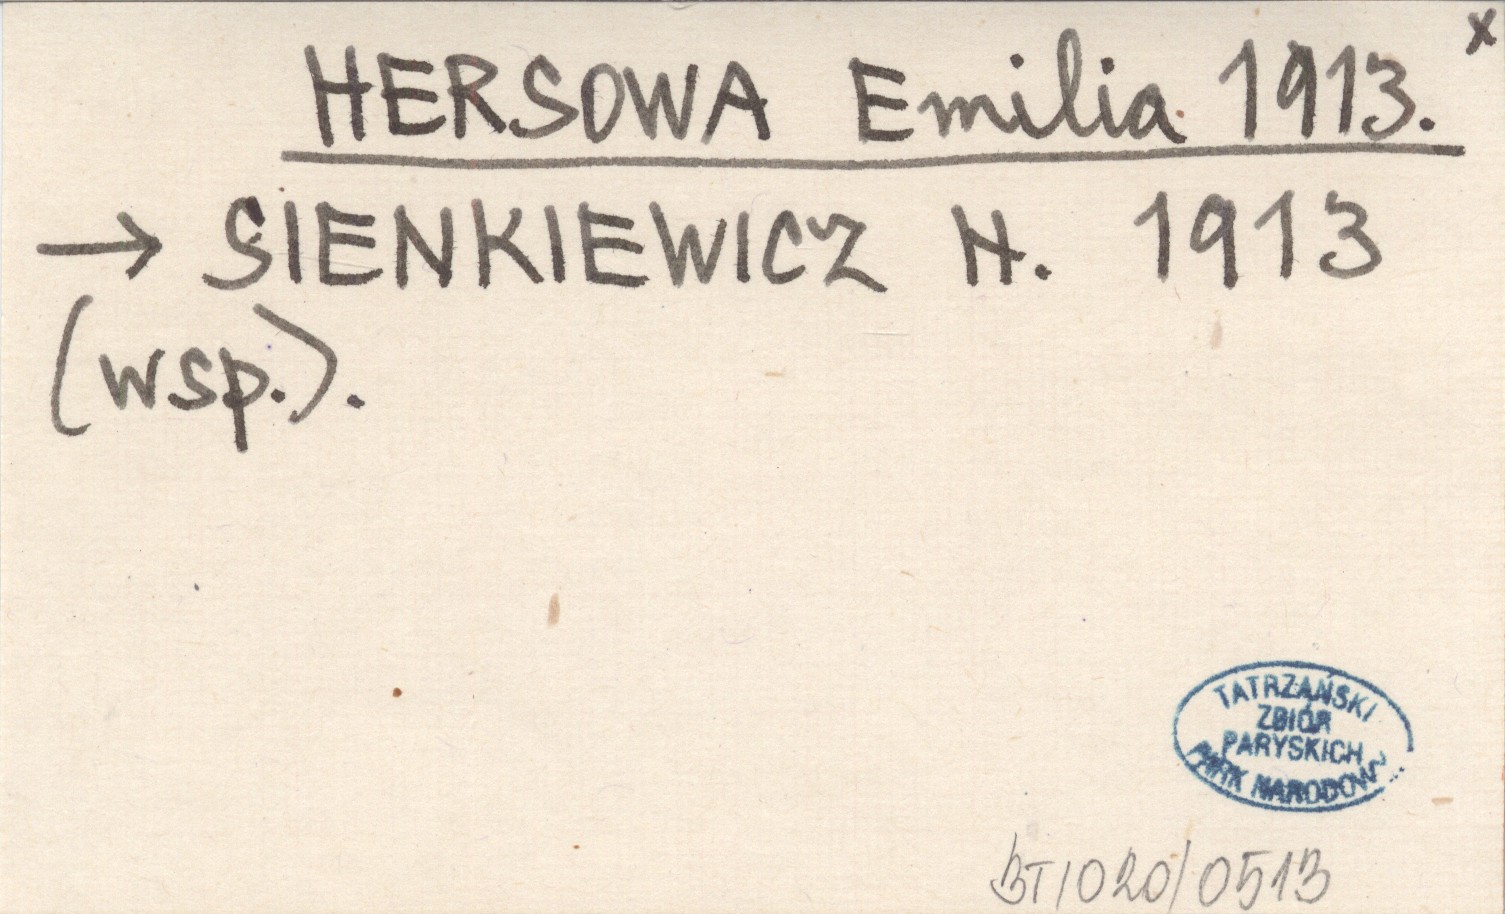 x
HERSOWA Emilia 1913.
→ SIENKIEWICZ H. 1913
(wsp.).
TATRZAŃSKI
ZBIÓR
PARYSKICH
PARK NARODOWY
BT/020/0513